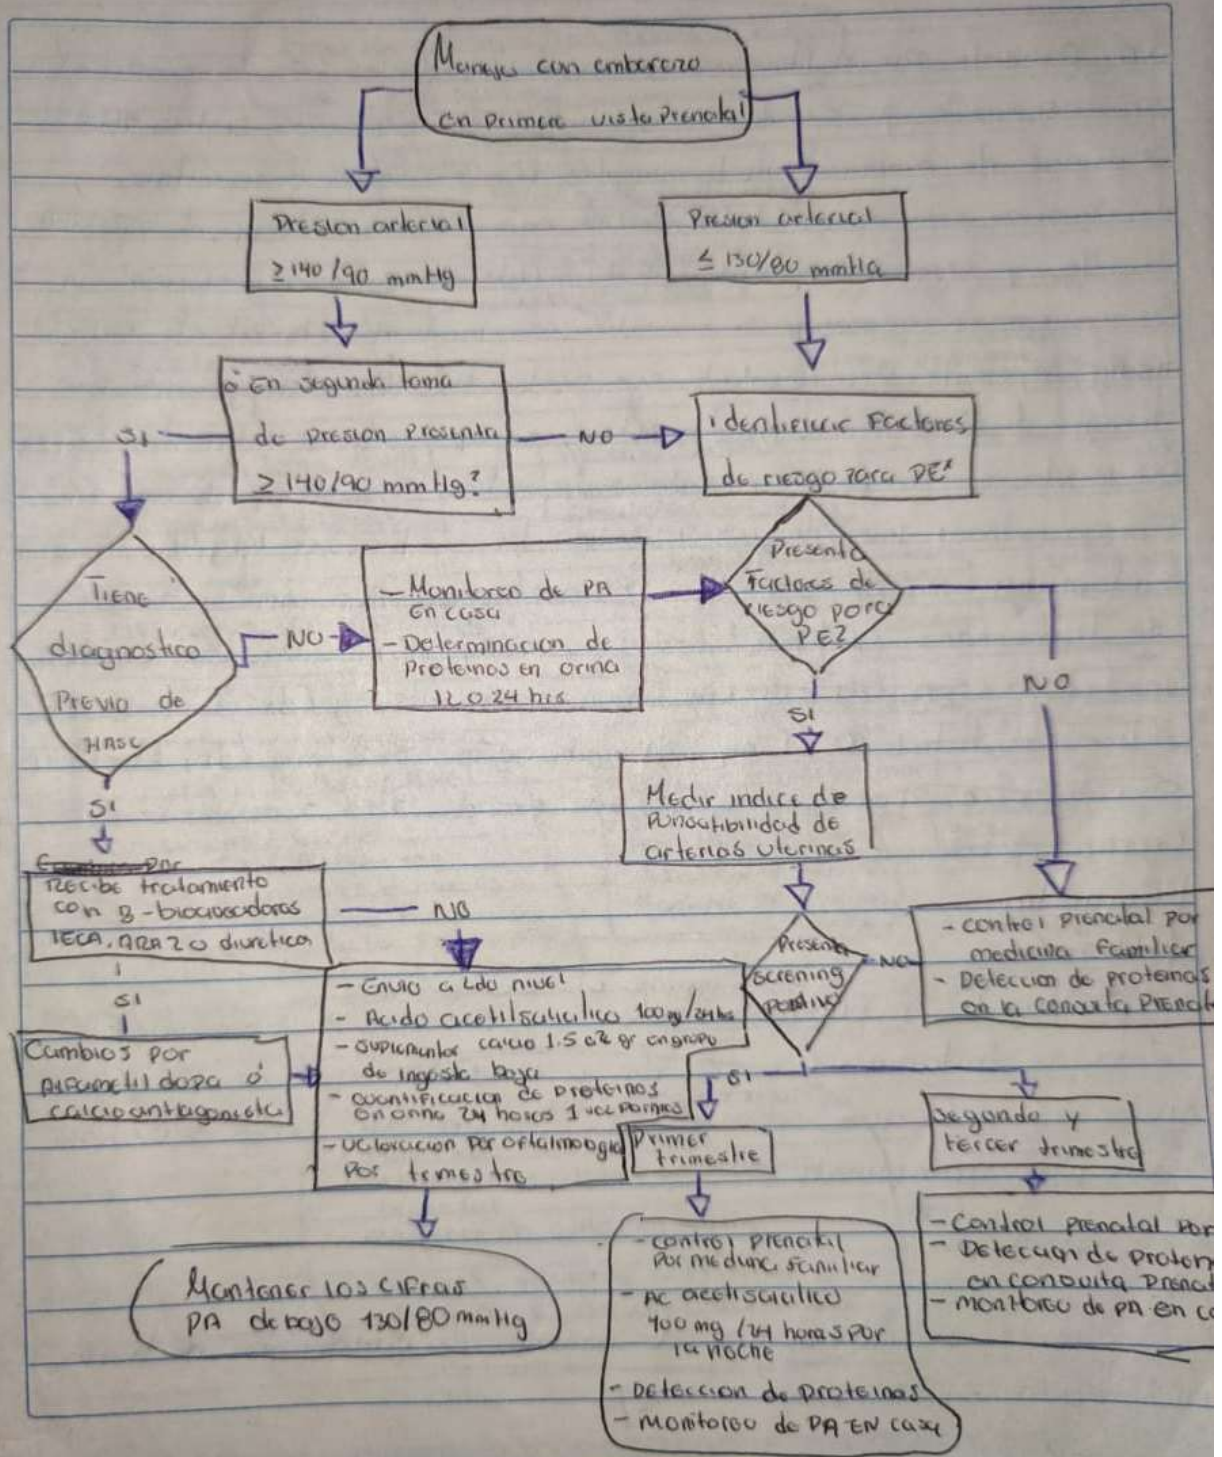 Manejo con embarazo
en primera visita prenatal
Presion arterial
≥140/90 mmHg
Presion arterial
≤ 130/80 mmHg
¿En segunda toma
de presion presenta
≥140/90 mmHg?
SI
NO
identificar Factores
de riesgo para PE*
Tiene
diagnostico
Previo de
HASC
NO
- Monitoreo de PA
En casa
- Determinacion de
Proteinas en orina
12 o 24 hrs
Presenta
Factores de
riesgo para
PE?
NO
SI
SI
Medir indice de
arterias uterinas
Recibe tratamiento
con B-bloqueadores
IECA, ARA 2 o diuretica
NO
SI
Cambios por
Alfametildopa ó
calcioantagonista
- Envio a 2do nivel
- Acido acetilsalicilico 100mg/24hs
- suplementos calcio 1.5 o 2 gr en grupo
de ingesta baja
- cuantificacion de proteinas
en orina 24 horas 1 vez por mes
- valoracion por oftalmologia
por trimestre
Presenta
screning
positivo
NO
- control prenatal por
medicina Familiar
- Deteccion de proteinas
en la consulta
SI
Primer
trimestre
segundo y
tercer trimestre
Mantener los cifras
PA debajo 130/80 mmHg
- control prenatal
por medicina familiar
- AC acetilsalicilico
100 mg /24 horas por
la noche
- Deteccion de proteinas
- monitoreo de PA EN casa
- Control prenatal por
- Deteccion de
en consulta
- monitoreo de PA en